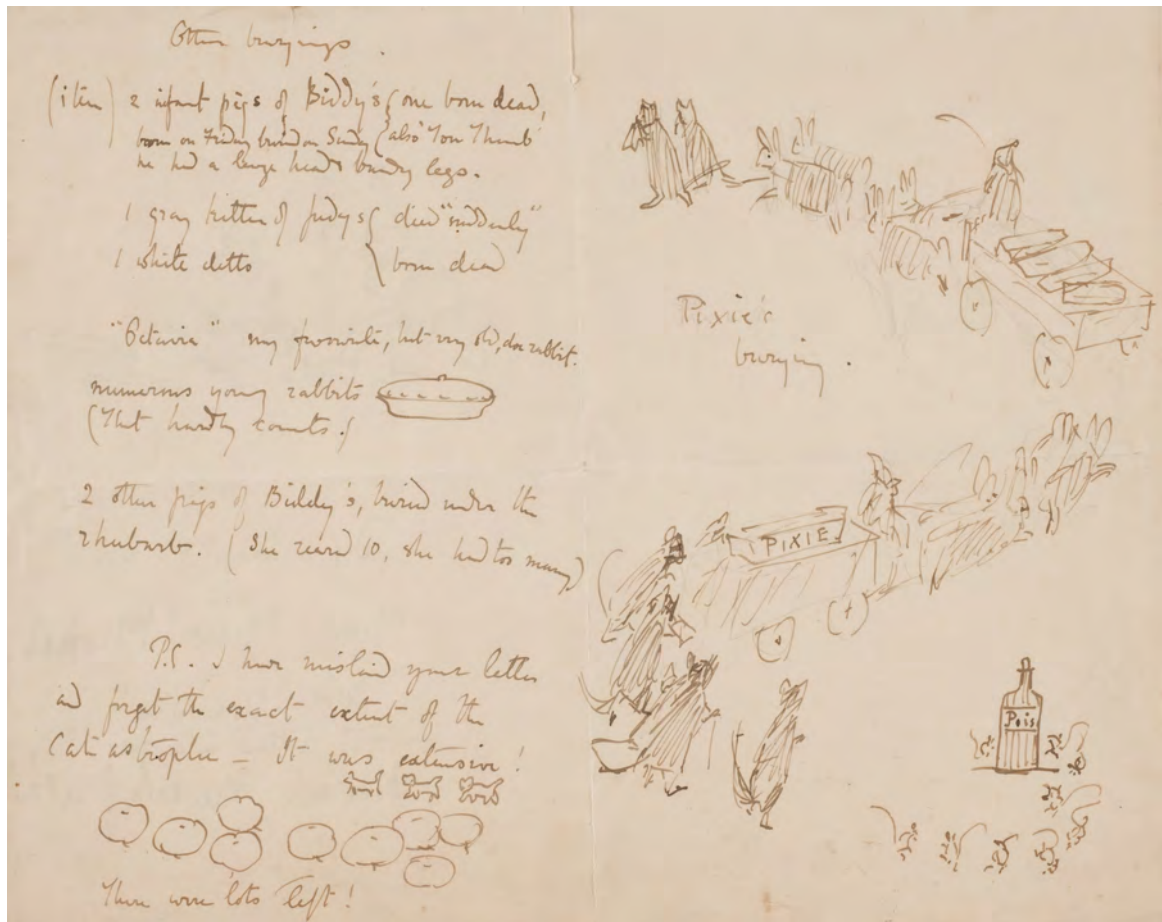 Other buryings.
(item) 2 infant pigs of Biddy's { one born dead,
born on Friday buried on Sunday { also "Tom Thumb"
he had a large head & bandy legs.
1 gray kitten of Judy's { died "suddenly"
1 white ditto { born dead
"Octavia" my favourite, but very old, doe rabbit.
numerous young rabbits
(That hardly counts.)
2 other pigs of Biddy's, buried under the
rhubarb. (She reared 10, she had too many)
P.S. I have mislaid your letter
and forget the exact extent of the
Cat astrophe – It was extensive!
There were lots left!
Pixie's
burying.
PIXIE
Pois